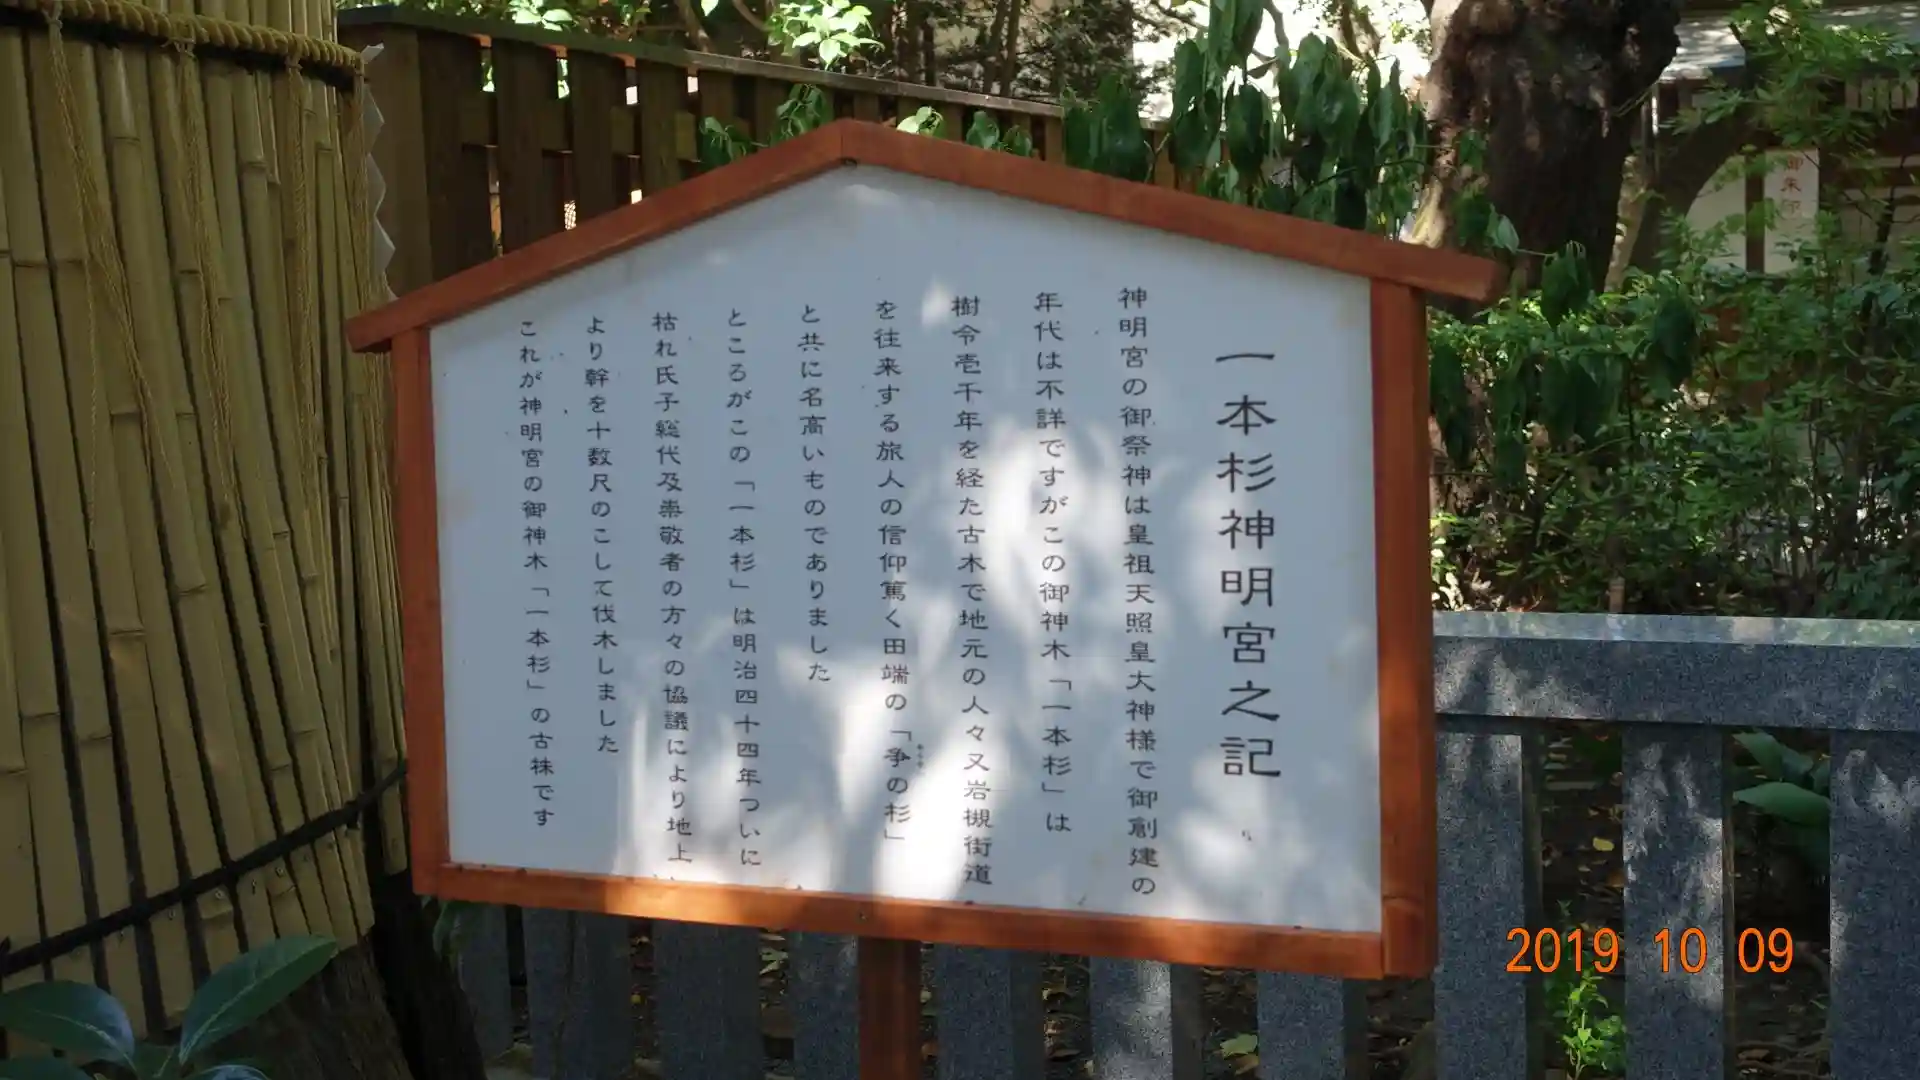 一本杉神明宮之記
神明宮の御祭神は皇祖天照皇大神様で御創建の
年代は不詳ですがこの御神木「一本杉」は
樹令壱千年を経た古木で地元の人々又岩槻街道
を往来する旅人の信仰篤く田端の「争の杉」
と共に名高いものでありました
ところがこの「一本杉」は明治四十四年ついに
枯れ氏子総代及崇敬者の方々の協議により地上
より幹を十数尺のこして伐木しました
これが神明宮の御神木「一本杉」の古株です
御朱印
2019 10 09